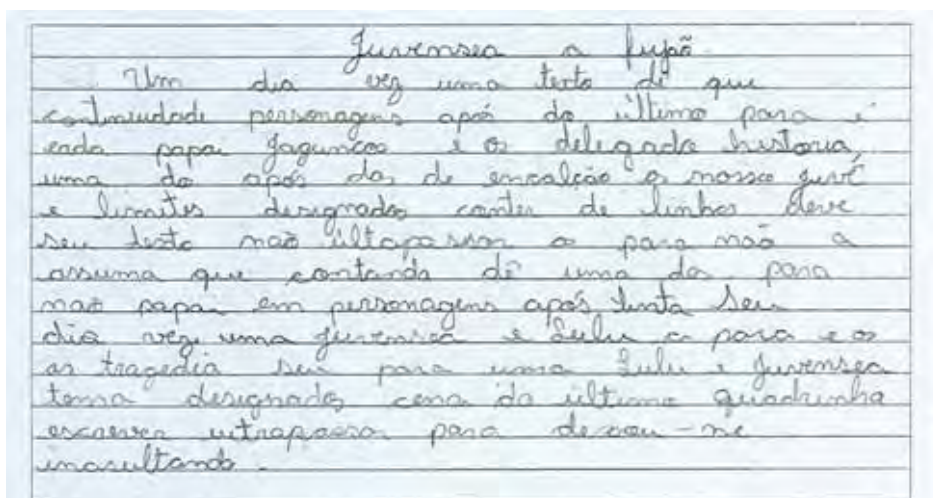 Juvensea a fujão
Um dia vez uma texto dê que
continuidade personagens após do último para é
cada papai Jagunços e os delegado história,
uma do após das de encalção o nosso juvê
e limites designados conter de linhas deve
seu texto não últapassar o para não a
assuma que contando dê uma da para
não papai em personagens após tinta seu
dia vez uma Juvensea e Lulu a para e os
as tragedia seu para uma Lulu e Juvensea
toma designados cena do ultimo quadrinha
escrever utrapassar para deixou-me
inasultando.